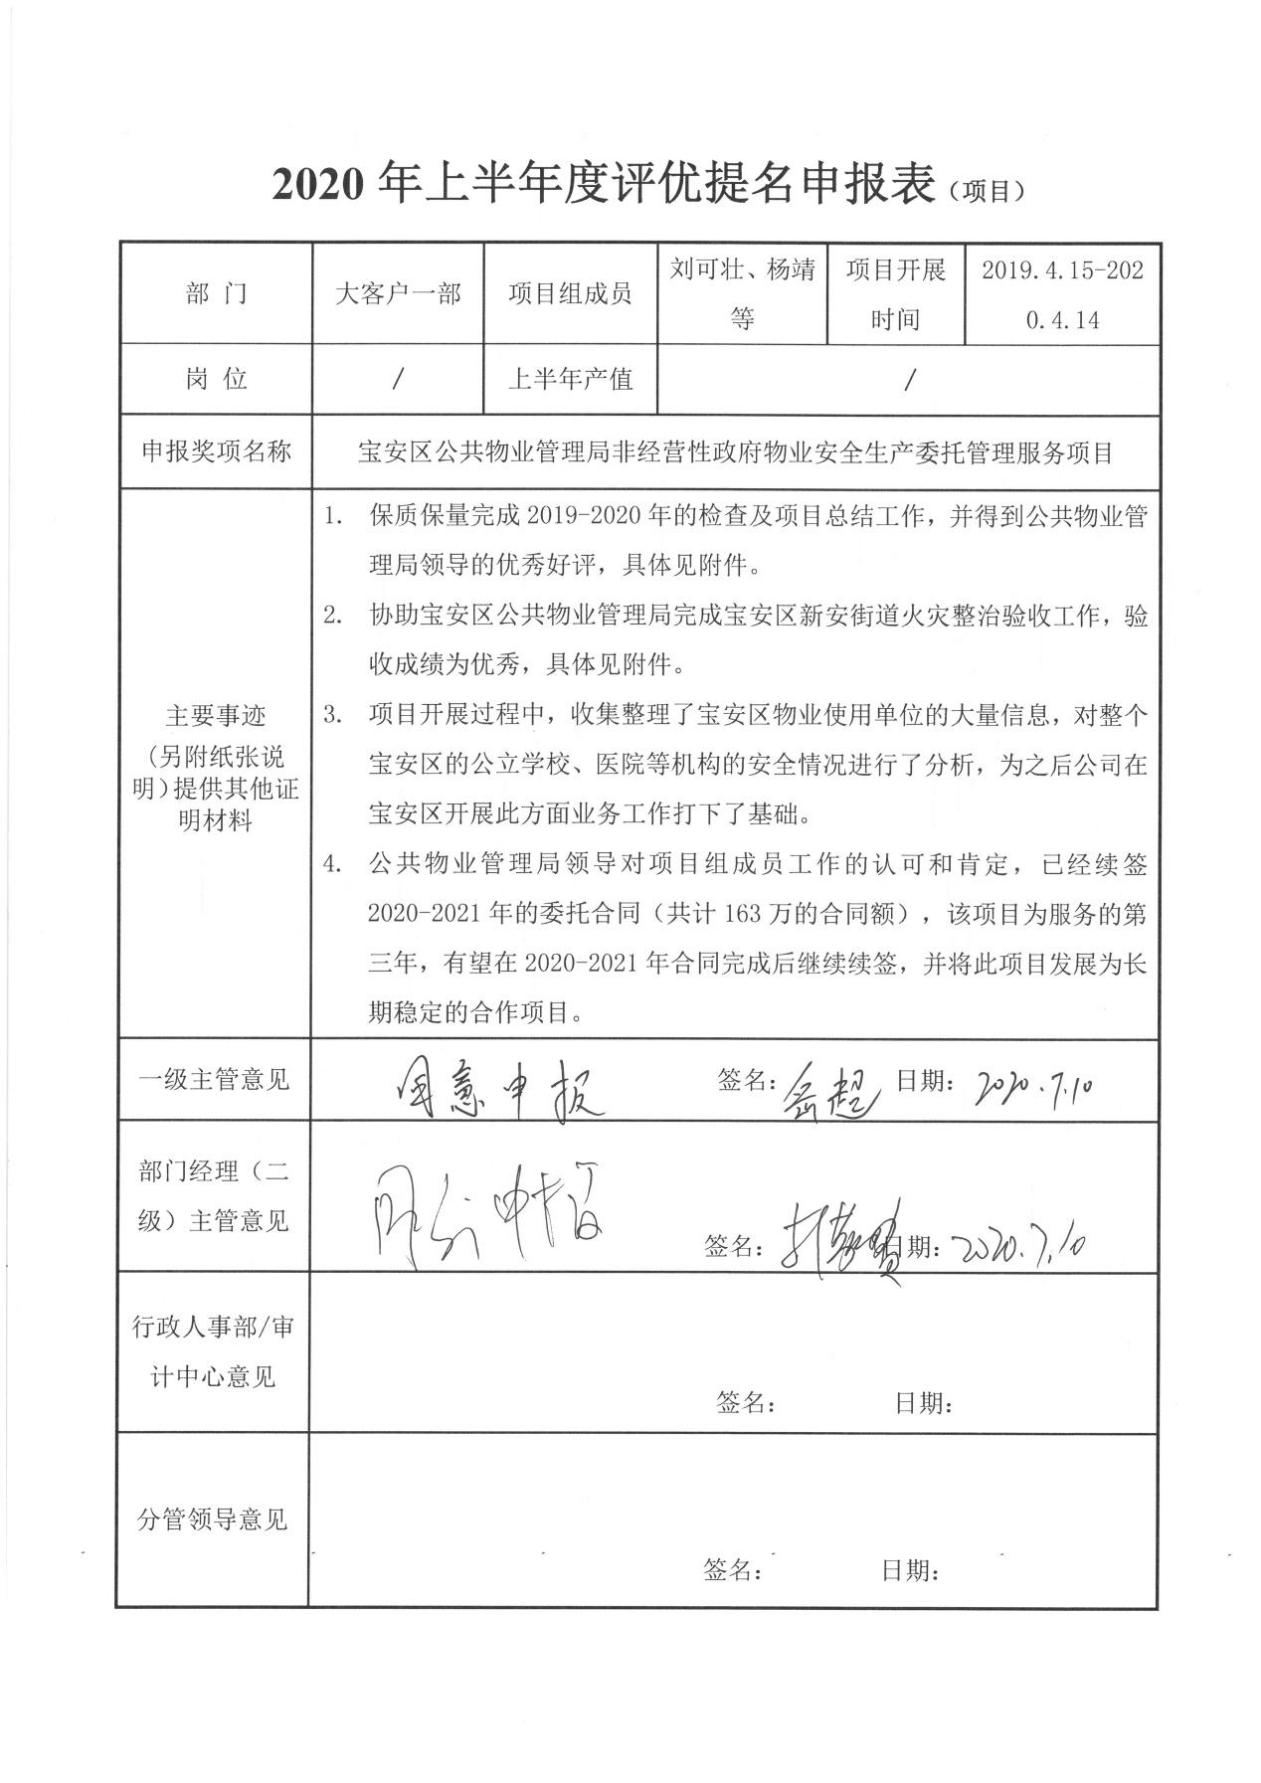 2020 年上半年度评优提名申报表（项目）
部 门
大客户一部
项目组成员
刘可壮、杨靖
等
项目开展
时间
2019.4.15-202
0.4.14
岗 位
/
上半年产值
/
申报奖项名称
宝安区公共物业管理局非经营性政府物业安全生产委托管理服务项目
主要事迹
（另附纸张说
明）提供其他证
明材料
1. 保质保量完成 2019-2020 年的检查及项目总结工作，并得到公共物业管
理局领导的优秀好评，具体见附件。
2. 协助宝安区公共物业管理局完成宝安区新安街道火灾整治验收工作，验
收成绩为优秀，具体见附件。
3. 项目开展过程中，收集整理了宝安区物业使用单位的大量信息，对整个
宝安区的公立学校、医院等机构的安全情况进行了分析，为之后公司在
宝安区开展此方面业务工作打下了基础。
4. 公共物业管理局领导对项目组成员工作的认可和肯定，已经续签
2020-2021 年的委托合同（共计 163 万的合同额），该项目为服务的第
三年，有望在 2020-2021 年合同完成后继续续签，并将此项目发展为长
期稳定的合作项目。
一级主管意见
同意申报
签名：
日期：2020.7.10
部门经理（二
级）主管意见
签名：
日期：2020.7.10
行政人事部/审
计中心意见
签名：
日期：
分管领导意见
签名：
日期：